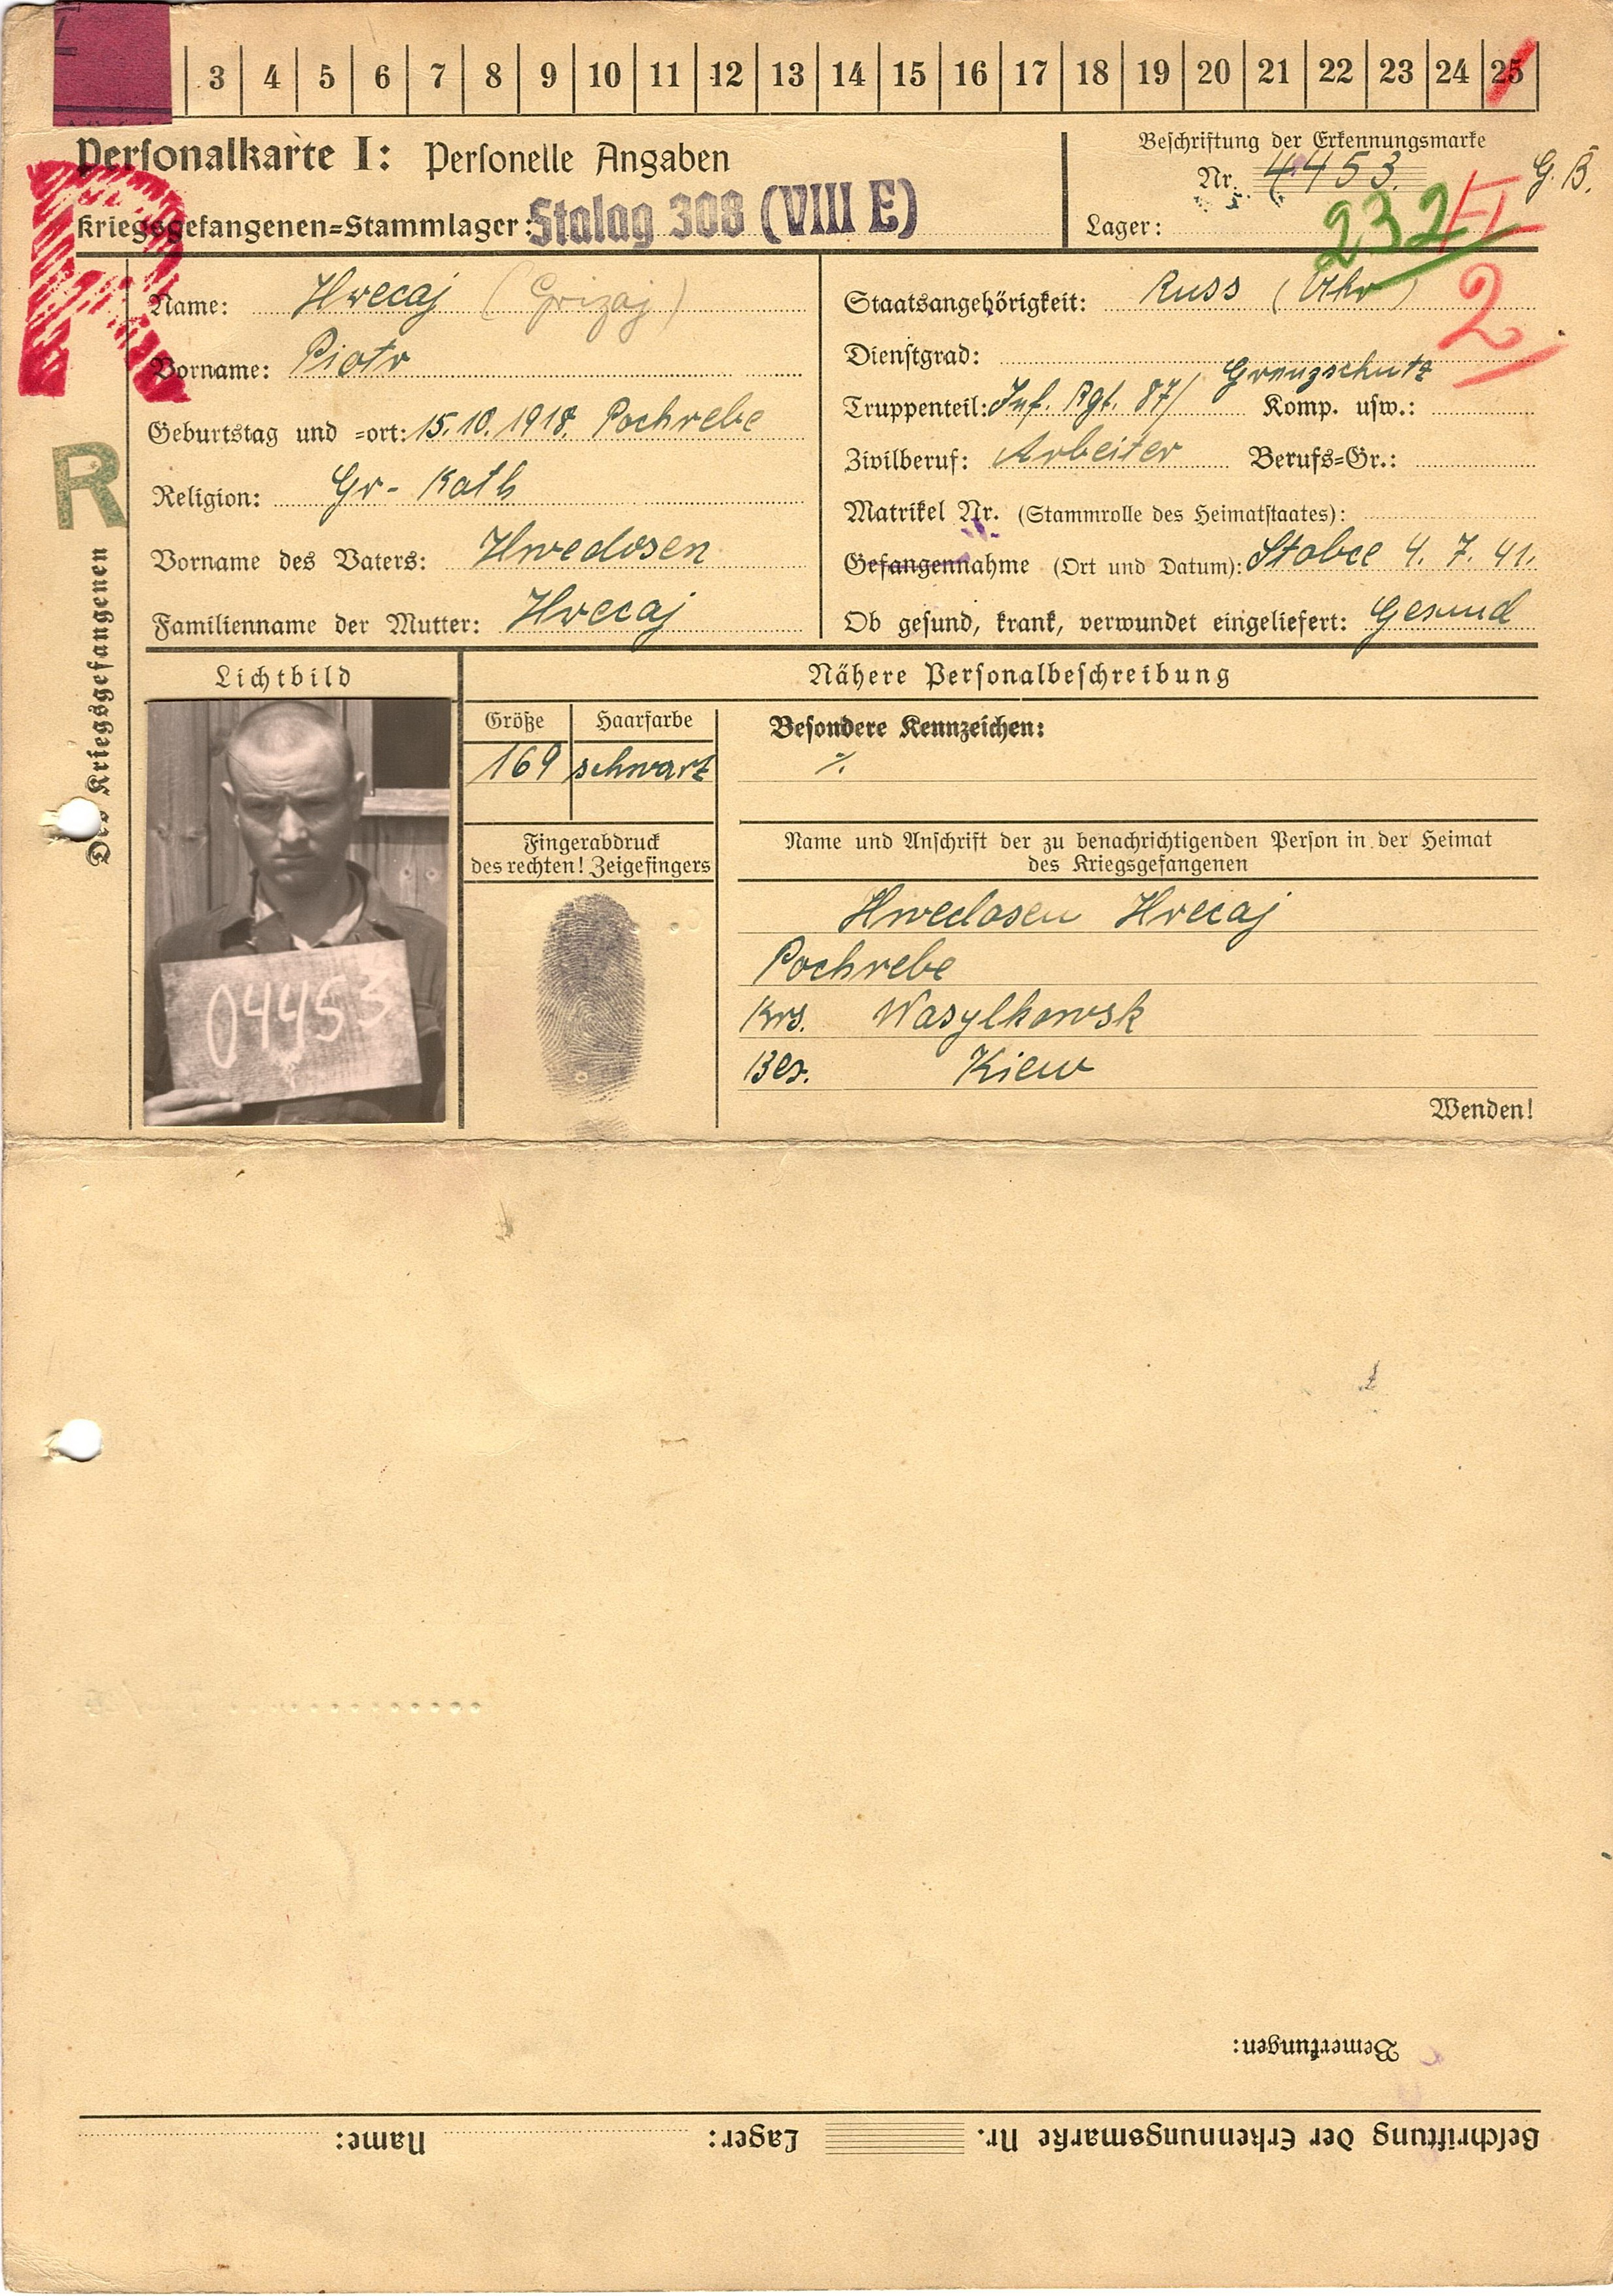 3 4 5 6 7 8 9 10 11 12 13 14 15 16 17 18 19 20 21 22 23 24 25
Personalkarte I: Personelle Angaben
Kriegsgefangenen=Stammlager: Stalag 308 (VIII E)
Beschriftung der Erkennungsmarke
Nr. 4453. G. B.
Lager:
232/
2
R
R
Des Kriegsgefangenen
Name: Hrecaj (Grizaj)
Vorname: Piotr
Geburtstag und =ort: 15.10.1918. Pochrebe
Religion: Gr- Kath
Vorname des Vaters: Hwedosen
Familienname der Mutter: Hrecaj
Staatsangehörigkeit: Russ (Ukr)
Dienstgrad:
Grenzschutz
Truppenteil: Inf. Rgt. 87/ Komp. usw.:
Zivilberuf: Arbeiter Berufs=Gr.:
Matrikel Nr. (Stammrolle des Heimatstaates):
Gefangennahme (Ort und Datum): Stobce 4. 7. 41.
Ob gesund, krank, verwundet eingeliefert: Gesund
Lichtbild
04453
Nähere Personalbeschreibung
Größe Haarfarbe
169 schwarz
Fingerabdruck
des rechten! Zeigefingers
Besondere Kennzeichen:
Name und Anschrift der zu benachrichtigenden Person in der Heimat
des Kriegsgefangenen
Hwedosen Hrecaj
Pochrebe
Krs. Wasylkowsk
Bez. Kiew
Wenden!
Bemerkungen:
Beschriftung der Erkennungsmarke Nr. Lager: Name: